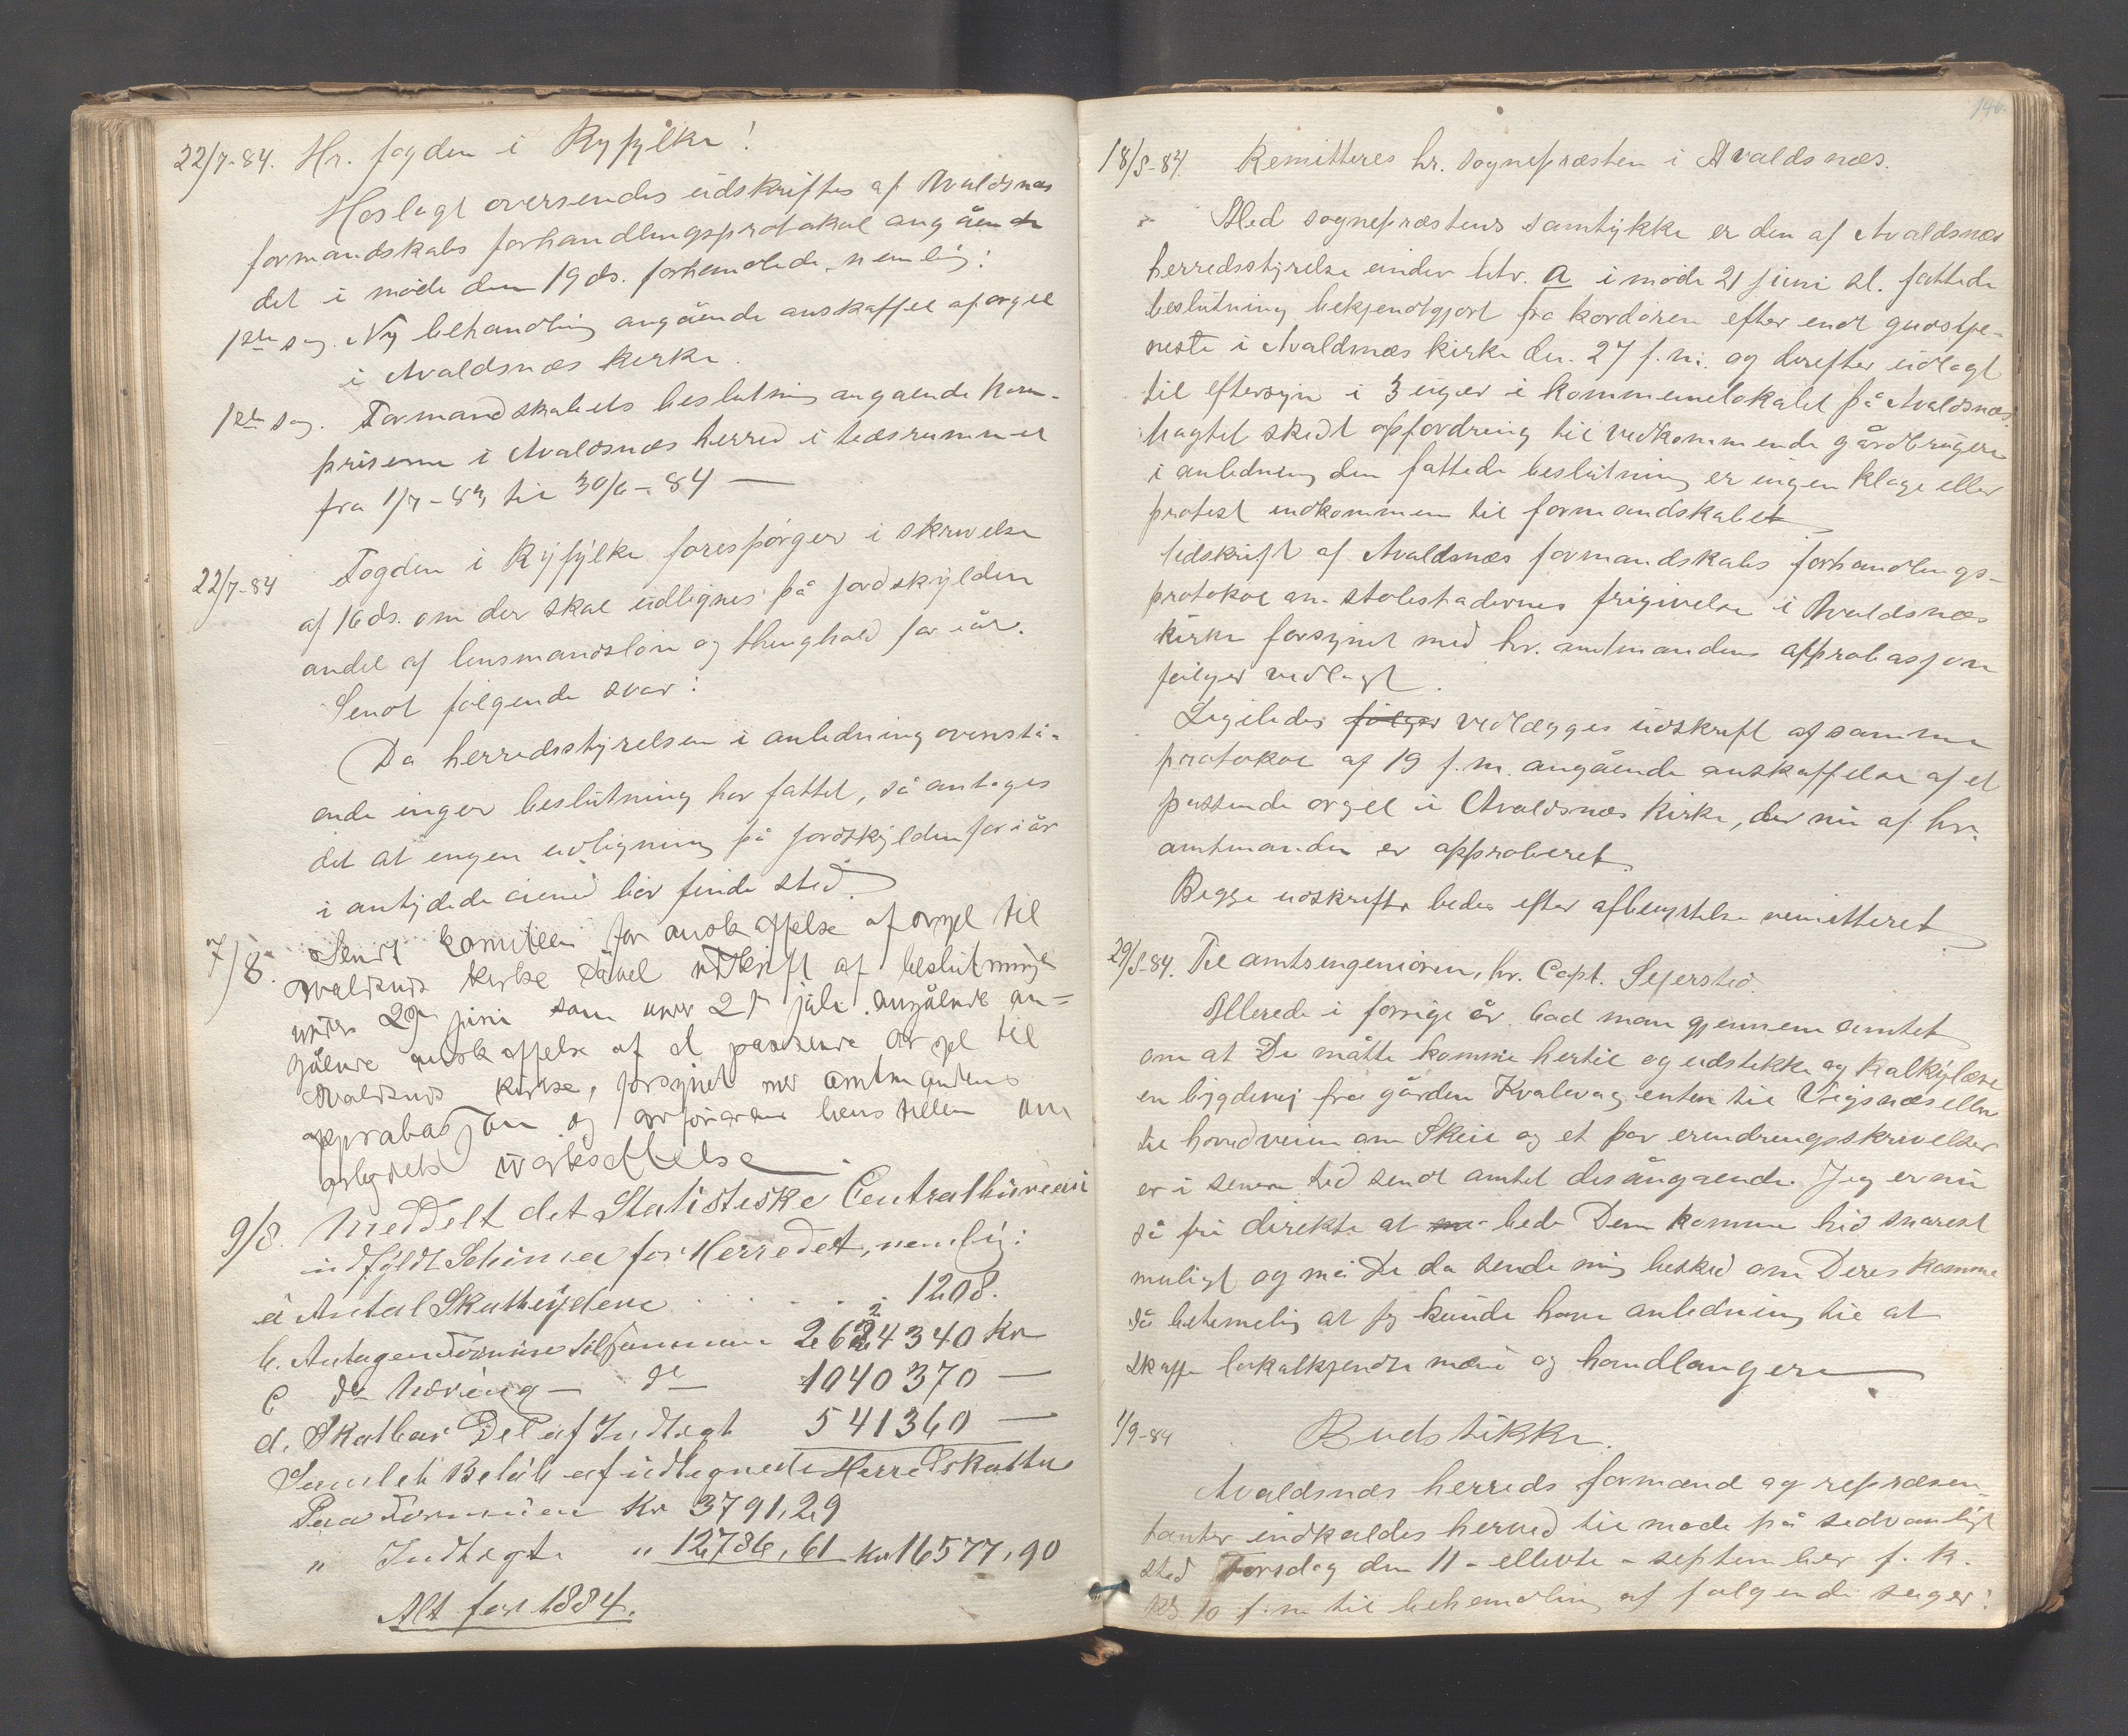 22/7-84. Hr. fogden i Ryfylke!
Hoslagt oversendes udskrifter af Avaldsnæs
formandskabs forhandlingsprotokol angående
det i møde den 19 ds. forhandlede, nemlig:
1ste sag. Ny behandling angående anskaffel af orgel
i Avaldsnæs kirke
1ste sag. Formandskabets beslutning angaende korn-
priserne i Avaldsnæs herred i tidsrummet
fra 1/7-83 til 30/6-84 —
22/7-84 Fogden i Ryfylke forespørger i skrivelse
af 16 ds. om der skal udlignes på jordskylden
andel af lensmandsløn og thinghold for iår.
Sendt følgende svar:
Da herredsstyrelsen i anledning ovenstå-
ende ingen beslutning har fattet, så antages
det at ingen udligning på jordskylden for i år
i antydede øiemed bør finde sted
7/8. Sendt komiteen for anskaffelse af orgel til
Avaldsnæs kirke såvel udskrift af beslutninge
under 29 juni som under 21 juli angålende an-
gående anskaffelse af et passende orgel til
Avaldsnæs kirke, forsynet med amtmandens
approbasjon og
arbeidets iværksættelse
9/8. Meddelt det Statistiske Centralbureau
udfyldt Schema for Herredet, nemlig:
a Antal Skatteydere . . . . . 1208.
2
b. Antagen Formue tilsammen 2624340 Kr
c do Næring — do — 1040370 —
d. Skatbar Del af Indtægt 541360 —
Samlet Beløb af udlignede Herredskatter
Paa Formuen Kr 3791,29
" Indtægt " 12786,61 Kr 16577,90
Alt for 1884.
146.
18/8-84. Remitteres hr. sognepræsten i Avaldsnæs.
Med sognepræstens samtykke er den af Avaldsnæs
herredsstyrelse under litr. a i møde 21 juni sl. fattede
beslutning bekjendtgjort fra kordøren efter endt gudstje-
neste i Avaldsnæs kirke den 27 f. m. og derefter udlagt
til eftersyn i 3 uger i kommunelokalet på Avaldsnæs.
Uagtet skedt opfordring til vedkommende gårdbrugere
i anledning den fattede beslutning er ingen klage eller
protest indkommen til formandskabet
Udskrift af Avaldsnæs formandskabs forhandlings-
protokol an. stolestadernes frigivelse i Avaldsnæs
kirke forsynet med hr. amtmandens approbasjon
følger vedlagt.
Ligeledes følger vedlægges udskrift af samme
protokol af 19 f. m. angående anskaffelse af et
passende orgel i Avaldsnæs kirke, der nu af hr.
amtmanden er approberet
Begge udskrifter bedes efter afbenyttelse remitteret
29/8-84. Til amtsingeniøren, hr. Capt. Sejersted.
Allerede i forrige år bad man gjennem amtet
om at De måtte komme hertil og udstikke og kalkylere
en bygdevej fra gården Kvalevag enten til Vigsnæs eller
til hovedveien om Skeie og et par erindringsskrivelser
er i senere tid sendt amtet desångaende. Jeg er nu
så fri direkte at bede Dem komme hid snarest
muligt og må De da sende mig besked om Deres komme
så betimelig at jeg kunde have anledning til at
skaffe lokalkjendte mænd og handlangere
1/9-84 Budstikke.
Avaldsnæs herreds formænd og repræsen-
tanter indkaldes herved til møde på sedvanligt
sted Torsdag den 11 - ellevte - september f. k.
kl 10 f. m til behandling af følgende sager: